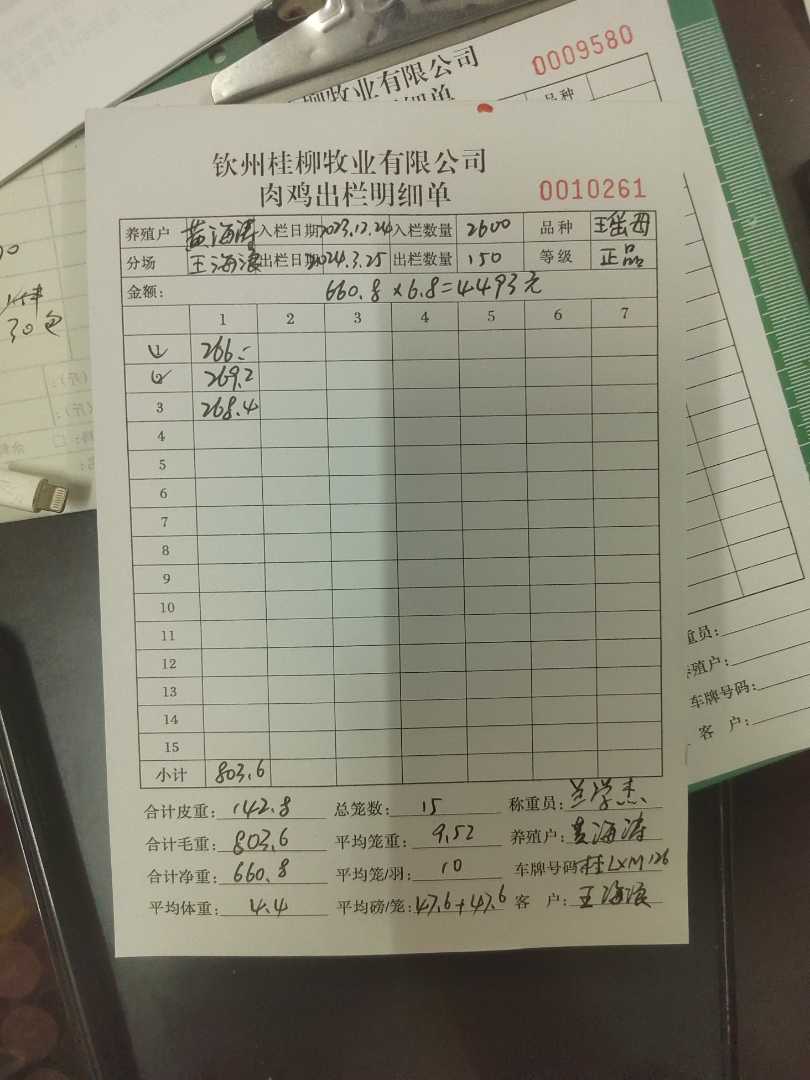 0009580
柳牧业有限公司
品种
钦州桂柳牧业有限公司
肉鸡出栏明细单 0010261
养殖户 黄海涛 入栏日期 2023.12.24 入栏数量 2600 品种
分场 王海浪 出栏日期 2024.3.25 出栏数量 150 等级 正品
金额: 660.8×6.8=4493元
1 2 3 4 5 6 7
① 266.
② 269.2
3 268.4
4
5
6
7
8
9
10
11
12
13
14
15
小计 803.6
合计皮重: 142.8 总笼数: 15 称重员: 兰学杰
合计毛重: 803.6 平均笼重: 9.52 养殖户: 黄海涛
合计净重: 660.8 平均笼/羽: 10 车牌号码: 桂LXM126
平均体重: 4.4 平均磅/笼: 47.6+47.6 客 户: 王海浪
重员:
殖户:
车牌号码:
客 户:
30包